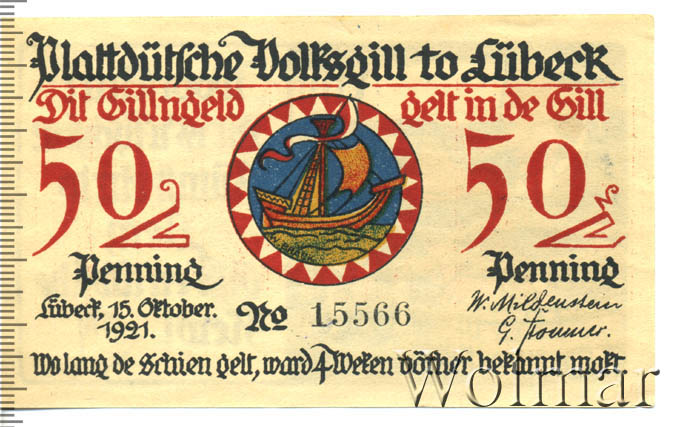 Plattdütsche Volksgill to Lübeck
Dit Gillngeld gelt in de Gill
50 50
Penning Penning
Lübeck, 15. Oktober. 1921.
No 15566
W. Mildenstein
Wo lang de Schien gelt, ward 4 Weken vörher bekannt mokt.
Wolmar